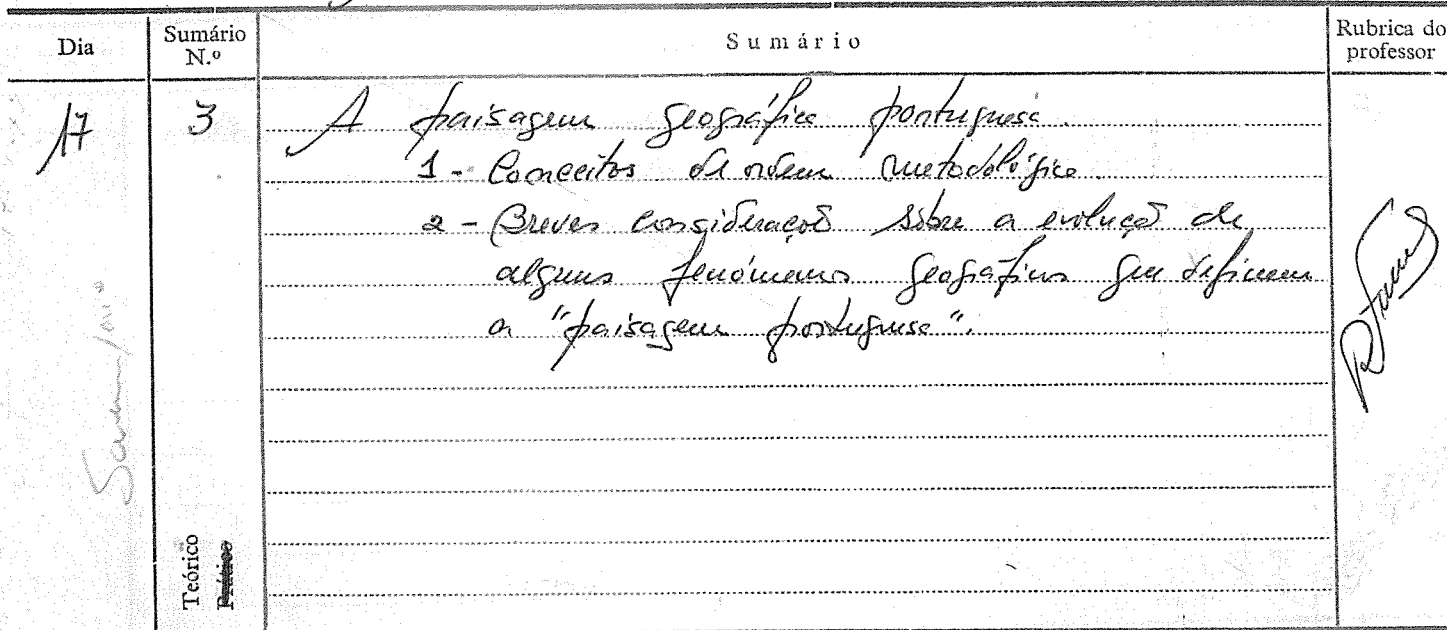 Dia
Sumário
N.º
Sumário
Rubrica do
professor
17
3
A paisagem geográfica portuguesa.
1 - Conceitos de ordem metodológica.
2 - Breves considerações sôbre a evolução de
alguns fenómenos geográficos que definem
a "paisagem portuguesa".
Teórico
Prático